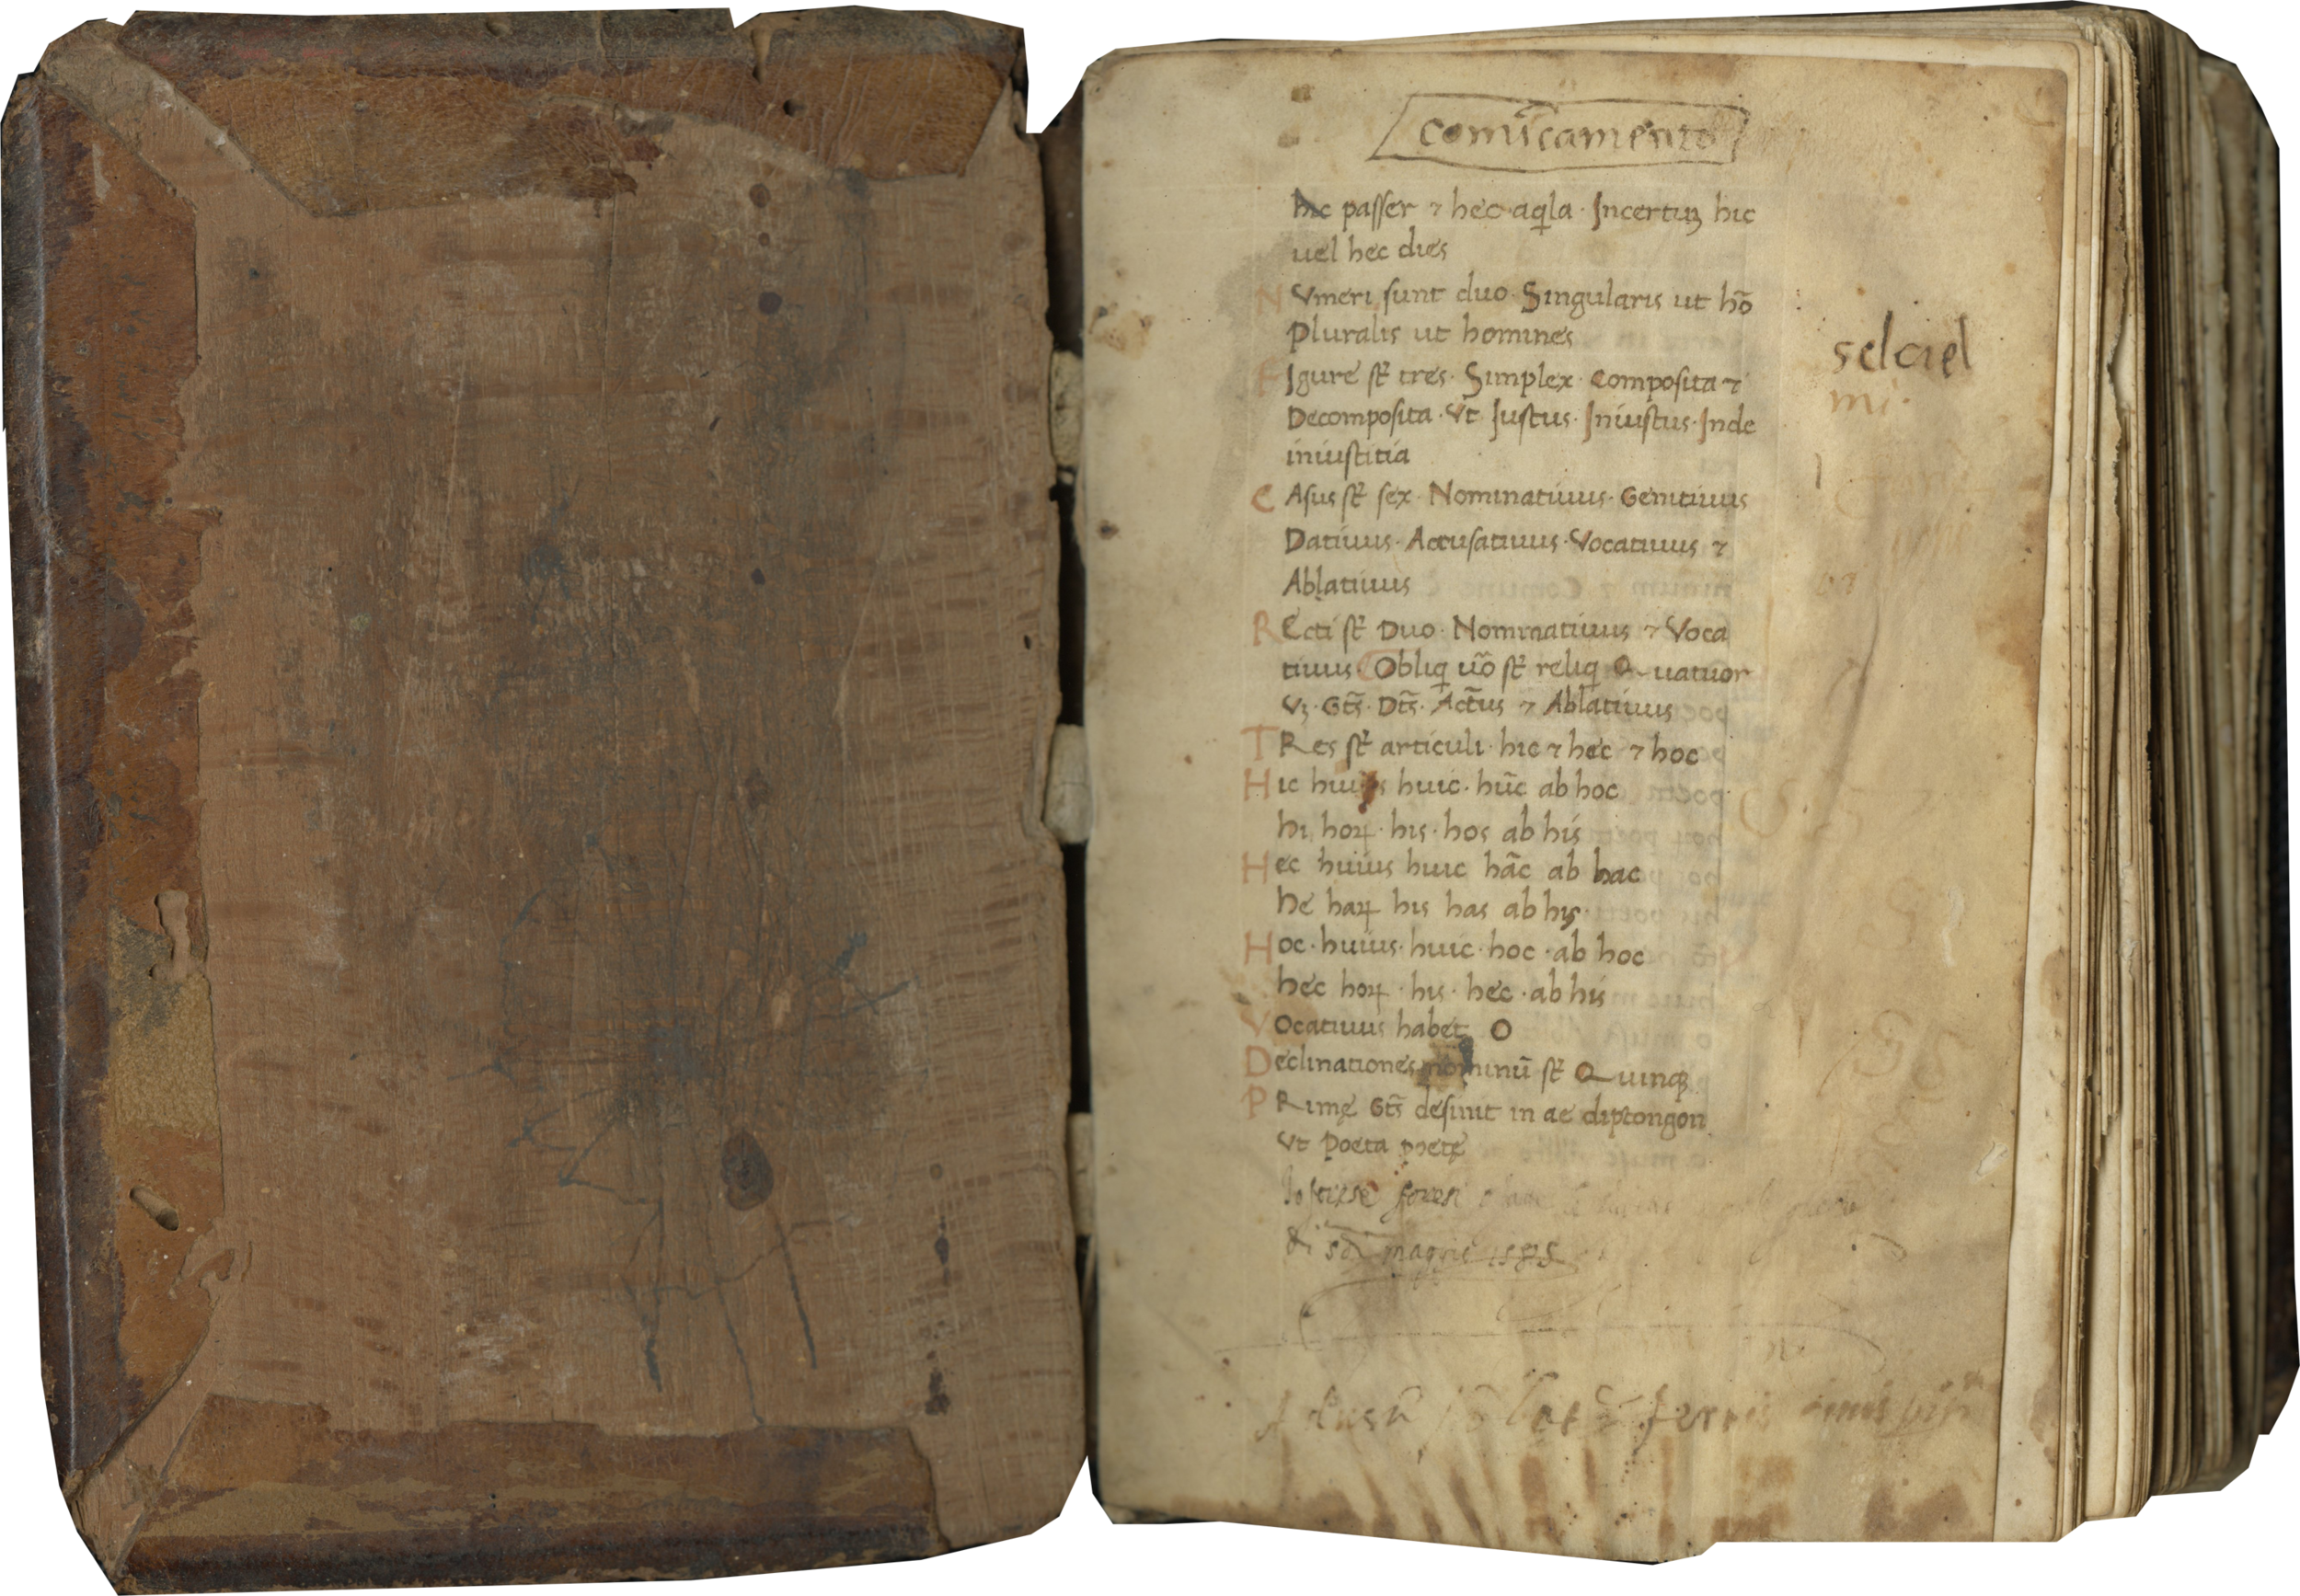 comīcamento
hic passer ⁊ hec aqila · Incertuꝫ hic
uel hec dies
NVmeri sunt duo · Singularis ut hō
Pluralis ut homines
FIgure st̄ tres · Simplex · Composita ⁊
Decomposita · Vt Iustus · Iniustus · Inde
iniustitia
CAsus st̄ sex · Nominatiuus · Genitiuus
Datiuus · Accusatiuus · Vocatiuus ⁊
Ablatiuus
REcti st̄ Duo · Nominatiuus ⁊ Voca
tiuus Obliq uo᷒ st̄ reliq Quatuor
Vꝫ · Gt̄s · Dt̄s · Act̄us ⁊ Ablatiuus
TRes st̄ articuli · hic ⁊ hec ⁊ hoc
Hic huius huic · hūc ab hoc
hi hoꝝ · his · hos ab his
Hec huius huic hāc ab hac
he haꝝ his has ab his ·
Hoc · huius · huic · hoc · ab hoc
hec hoꝝ · his · hec · ab his
Vocatiuus habet O
Declinationes nominū st̄ Quinqꝫ
PRimę Gt̄s desinit in ae diptongon
Vt Poeta poetę
selciel
mi